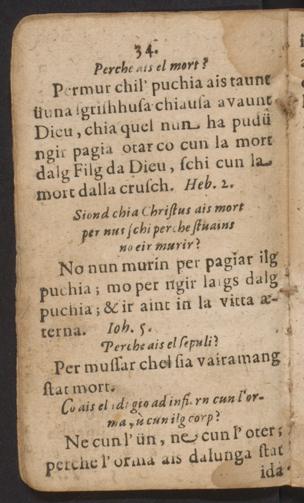 34.
Perche ais el mort?
Permur chil' puchia ais taunt
üuna sgrishhusa chiausa avaunt
Dieu, chia quel nun ha pudü
ngir pagia otar co cun la mort
dalg Filg da Dieu, schi cun la
mort dalla crusch. Heb. 2.
Siond chia Christus ais mort
per nus schi perche stuains
no eir murir?
No nun murin per pagiar ilg
puchia; mo per ngir laigs dalg
puchia; & ir aint in la vitta æ-
terna. Ioh. 5.
Perche ais el sepuli?
Per mussar chel sia vairamang
stat mort.
Co ais el gio ad infiern cun l'or-
ma, ù cun ilg corp?
Ne cun l' ün, ne cun l' oter;
perche l' orma ais dalunga stat
ida